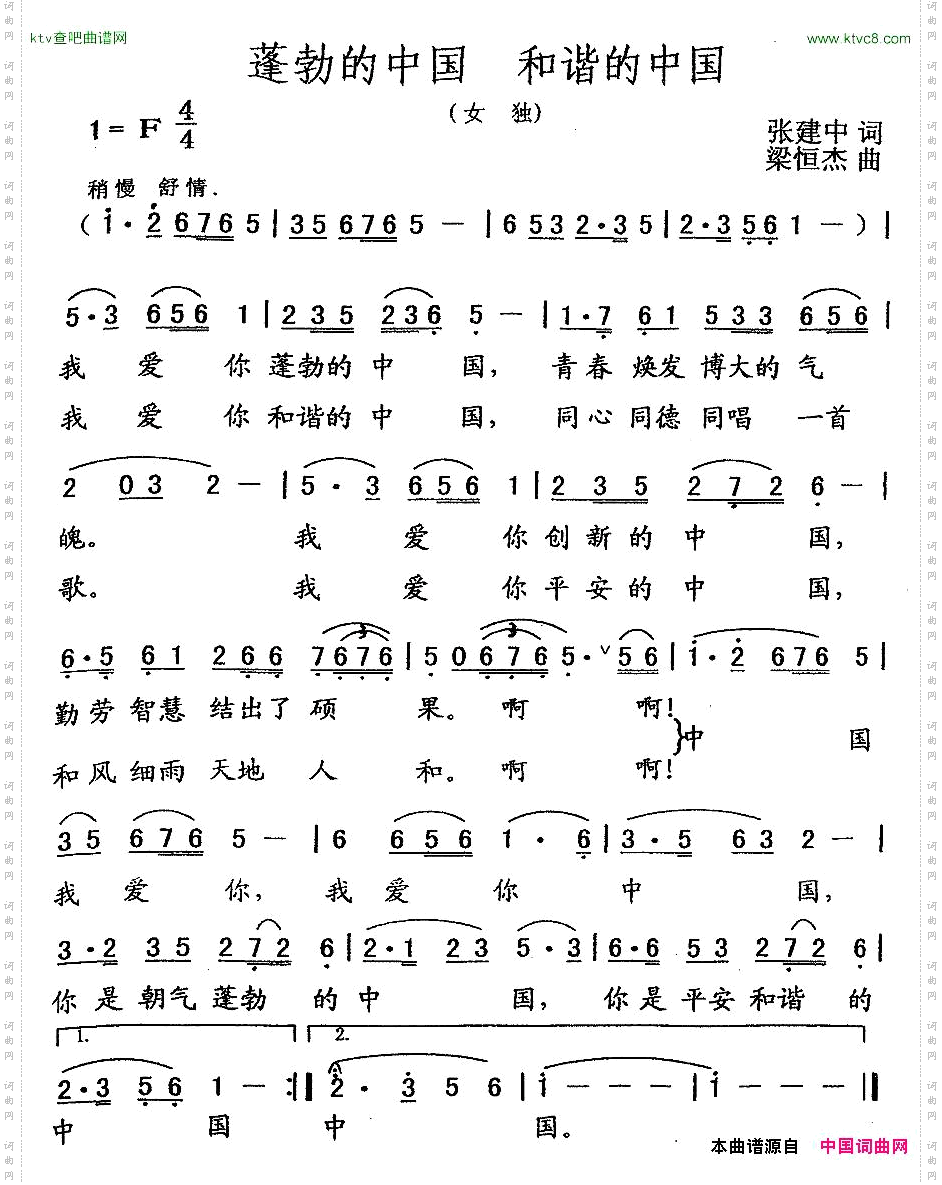 ktv查吧曲谱网
www.ktvc8.com
蓬勃的中国 和谐的中国
(女 独)
1=F 4/4
张建中 词
梁恒杰 曲
稍慢 舒情.
(1·26765|356765-|6532·35|2·3561-)|
5·36561|2352365-|1·761533656|
我爱你蓬勃的中国,青春焕发博大的气
我爱你和谐的中国,同心同德同唱一首
2032-|5·36561|2352726-|
魄。我爱你创新的中国,
歌。我爱你平安的中国,
6·5612667676|506765·∨56|1·26765|
3 3
勤劳智慧结出了硕果。啊啊!
}中国
和风细雨天地人和。啊啊!
356765-|66561·6|3·5632-|
我爱你,我爱你中国,
3·2352726|2·1235·3|6·6532726|
你是朝气蓬勃的中国,你是平安和谐的
1. 2.
2·3561-:||2·356|1---|1---||
中国中国。
本曲谱源自 中国词曲网